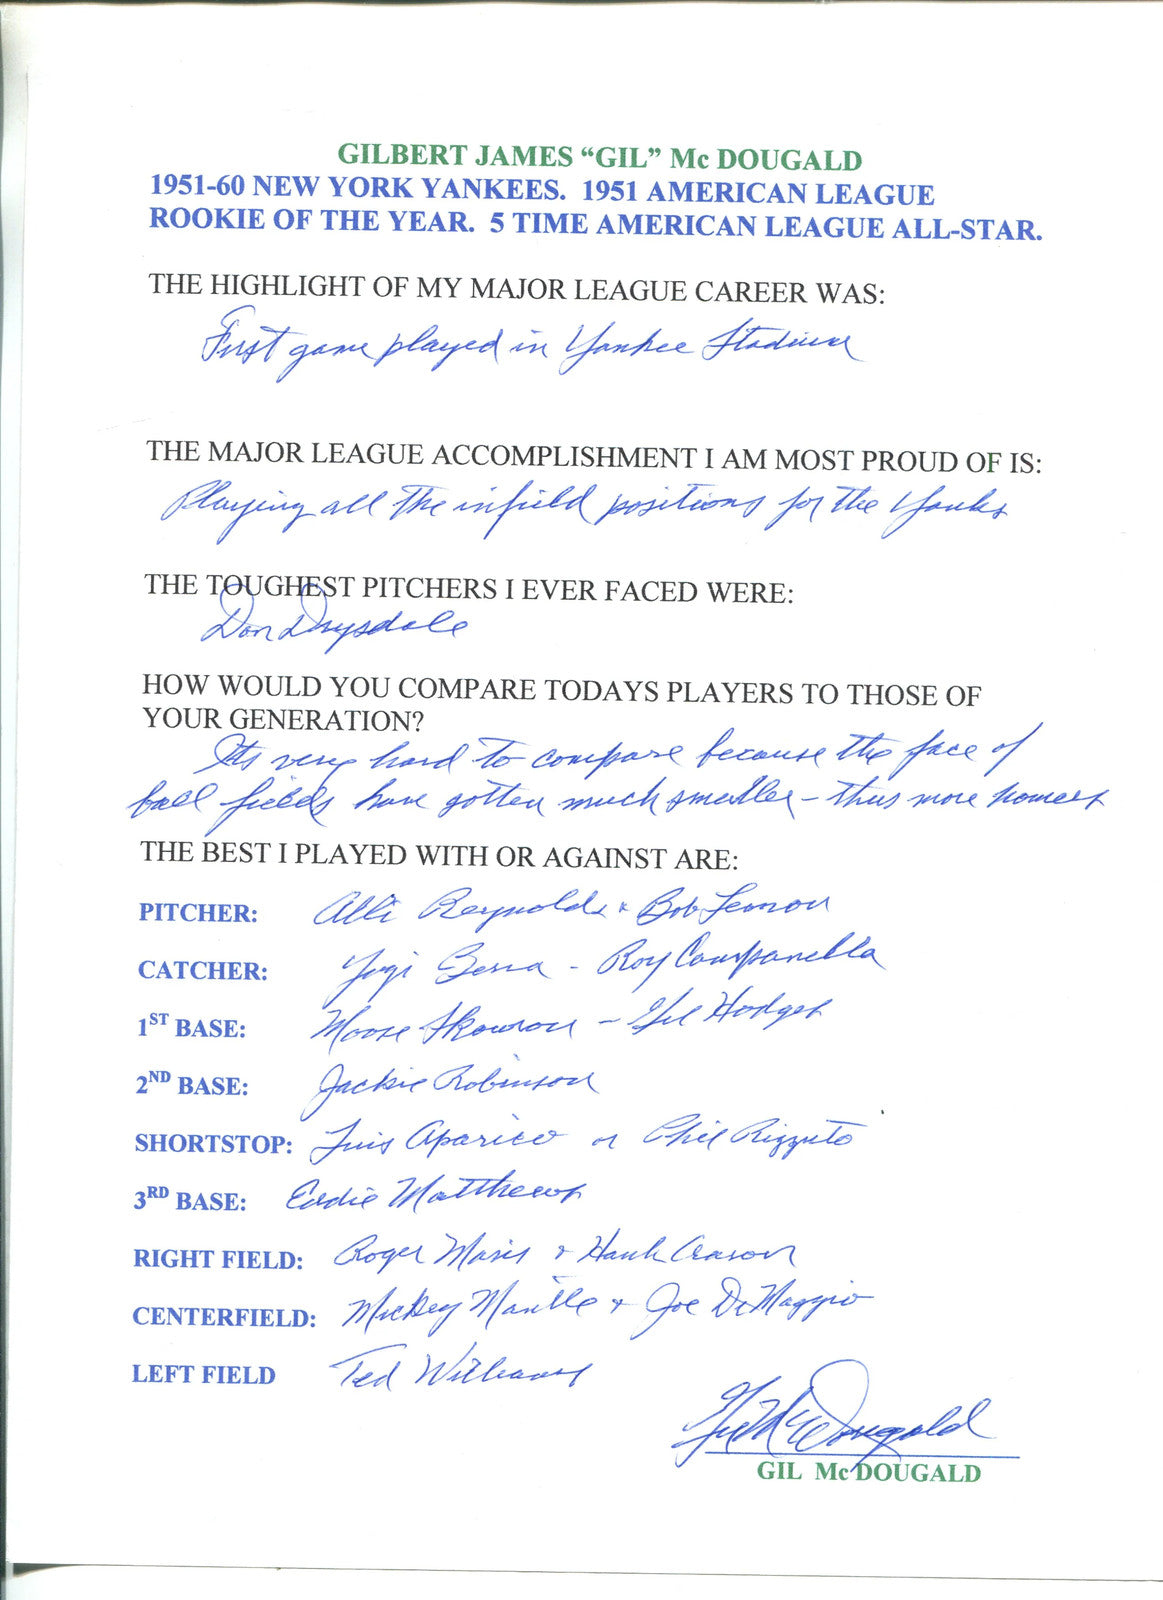 GILBERT JAMES “GIL” Mc DOUGALD
1951-60 NEW YORK YANKEES. 1951 AMERICAN LEAGUE
ROOKIE OF THE YEAR. 5 TIME AMERICAN LEAGUE ALL-STAR.
THE HIGHLIGHT OF MY MAJOR LEAGUE CAREER WAS:
First game played in Yankee Stadium
THE MAJOR LEAGUE ACCOMPLISHMENT I AM MOST PROUD OF IS:
Playing all the infield positions for the Yanks
THE TOUGHEST PITCHERS I EVER FACED WERE:
Don Drysdale
HOW WOULD YOU COMPARE TODAYS PLAYERS TO THOSE OF
YOUR GENERATION?
Its very hard to compare because the face of
ball fields have gotten much smaller - thus more homers
THE BEST I PLAYED WITH OR AGAINST ARE:
PITCHER: Alli Reynolds & Bob Lemon
CATCHER: Yogi Berra - Roy Campanella
1ST BASE: Moose Skowron - Gil Hodges
2ND BASE: Jackie Robinson
SHORTSTOP: Luis Aparico or Phil Rizzuto
3RD BASE: Eddie Matthews
RIGHT FIELD: Roger Maris & Hank Aaron
CENTERFIELD: Mickey Mantle & Joe DiMaggio
LEFT FIELD Ted Williams
Gil McDougald
GIL Mc DOUGALD